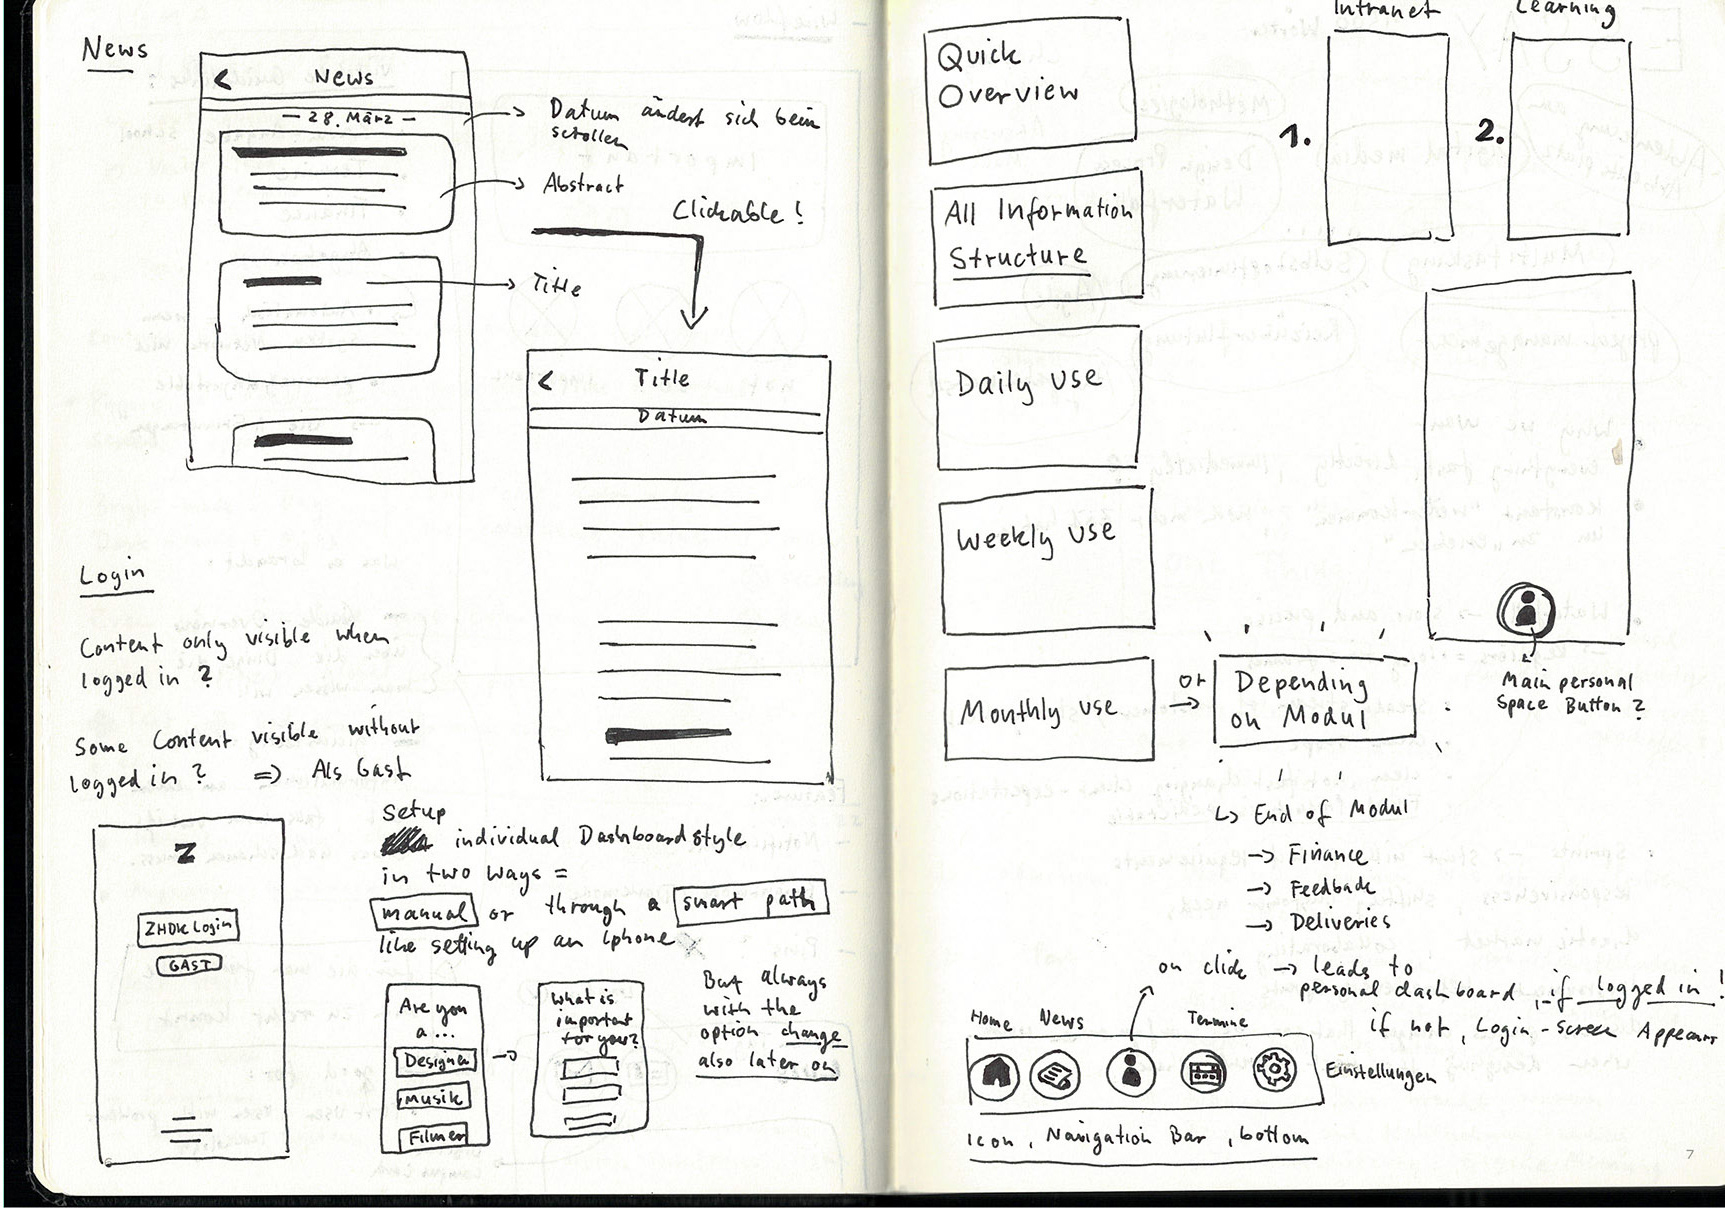 News
< News
– 28. März –
Datum ändert sich beim
scrollen
Abstract
Clickable!
Title
< Title
Datum
Login
Content only visible when
logged in?
Some Content visible without
logged in? => Als Gast
Z
ZHDK Login
GAST
Setup
individual Dashboardstyle
in two ways =
manual or through a smart path
like setting up an iphone
Are you
a ...
Designer
Musik
Filmer
What is
important
for you?
But always
with the
option change
also later on
Quick
Overview
All Information
Structure
Daily use
Weekly use
Monthly use
or
Depending
on Modul
End of Modul
Finance
Feedback
Deliveries
Intranet
Learning
1.
2.
Main personal
Space Button?
on click → leads to
personal dashboard, if logged in!
if not, Login-Screen Appears
Home News Termine
Einstellungen
Icon, Navigation Bar, bottom
7